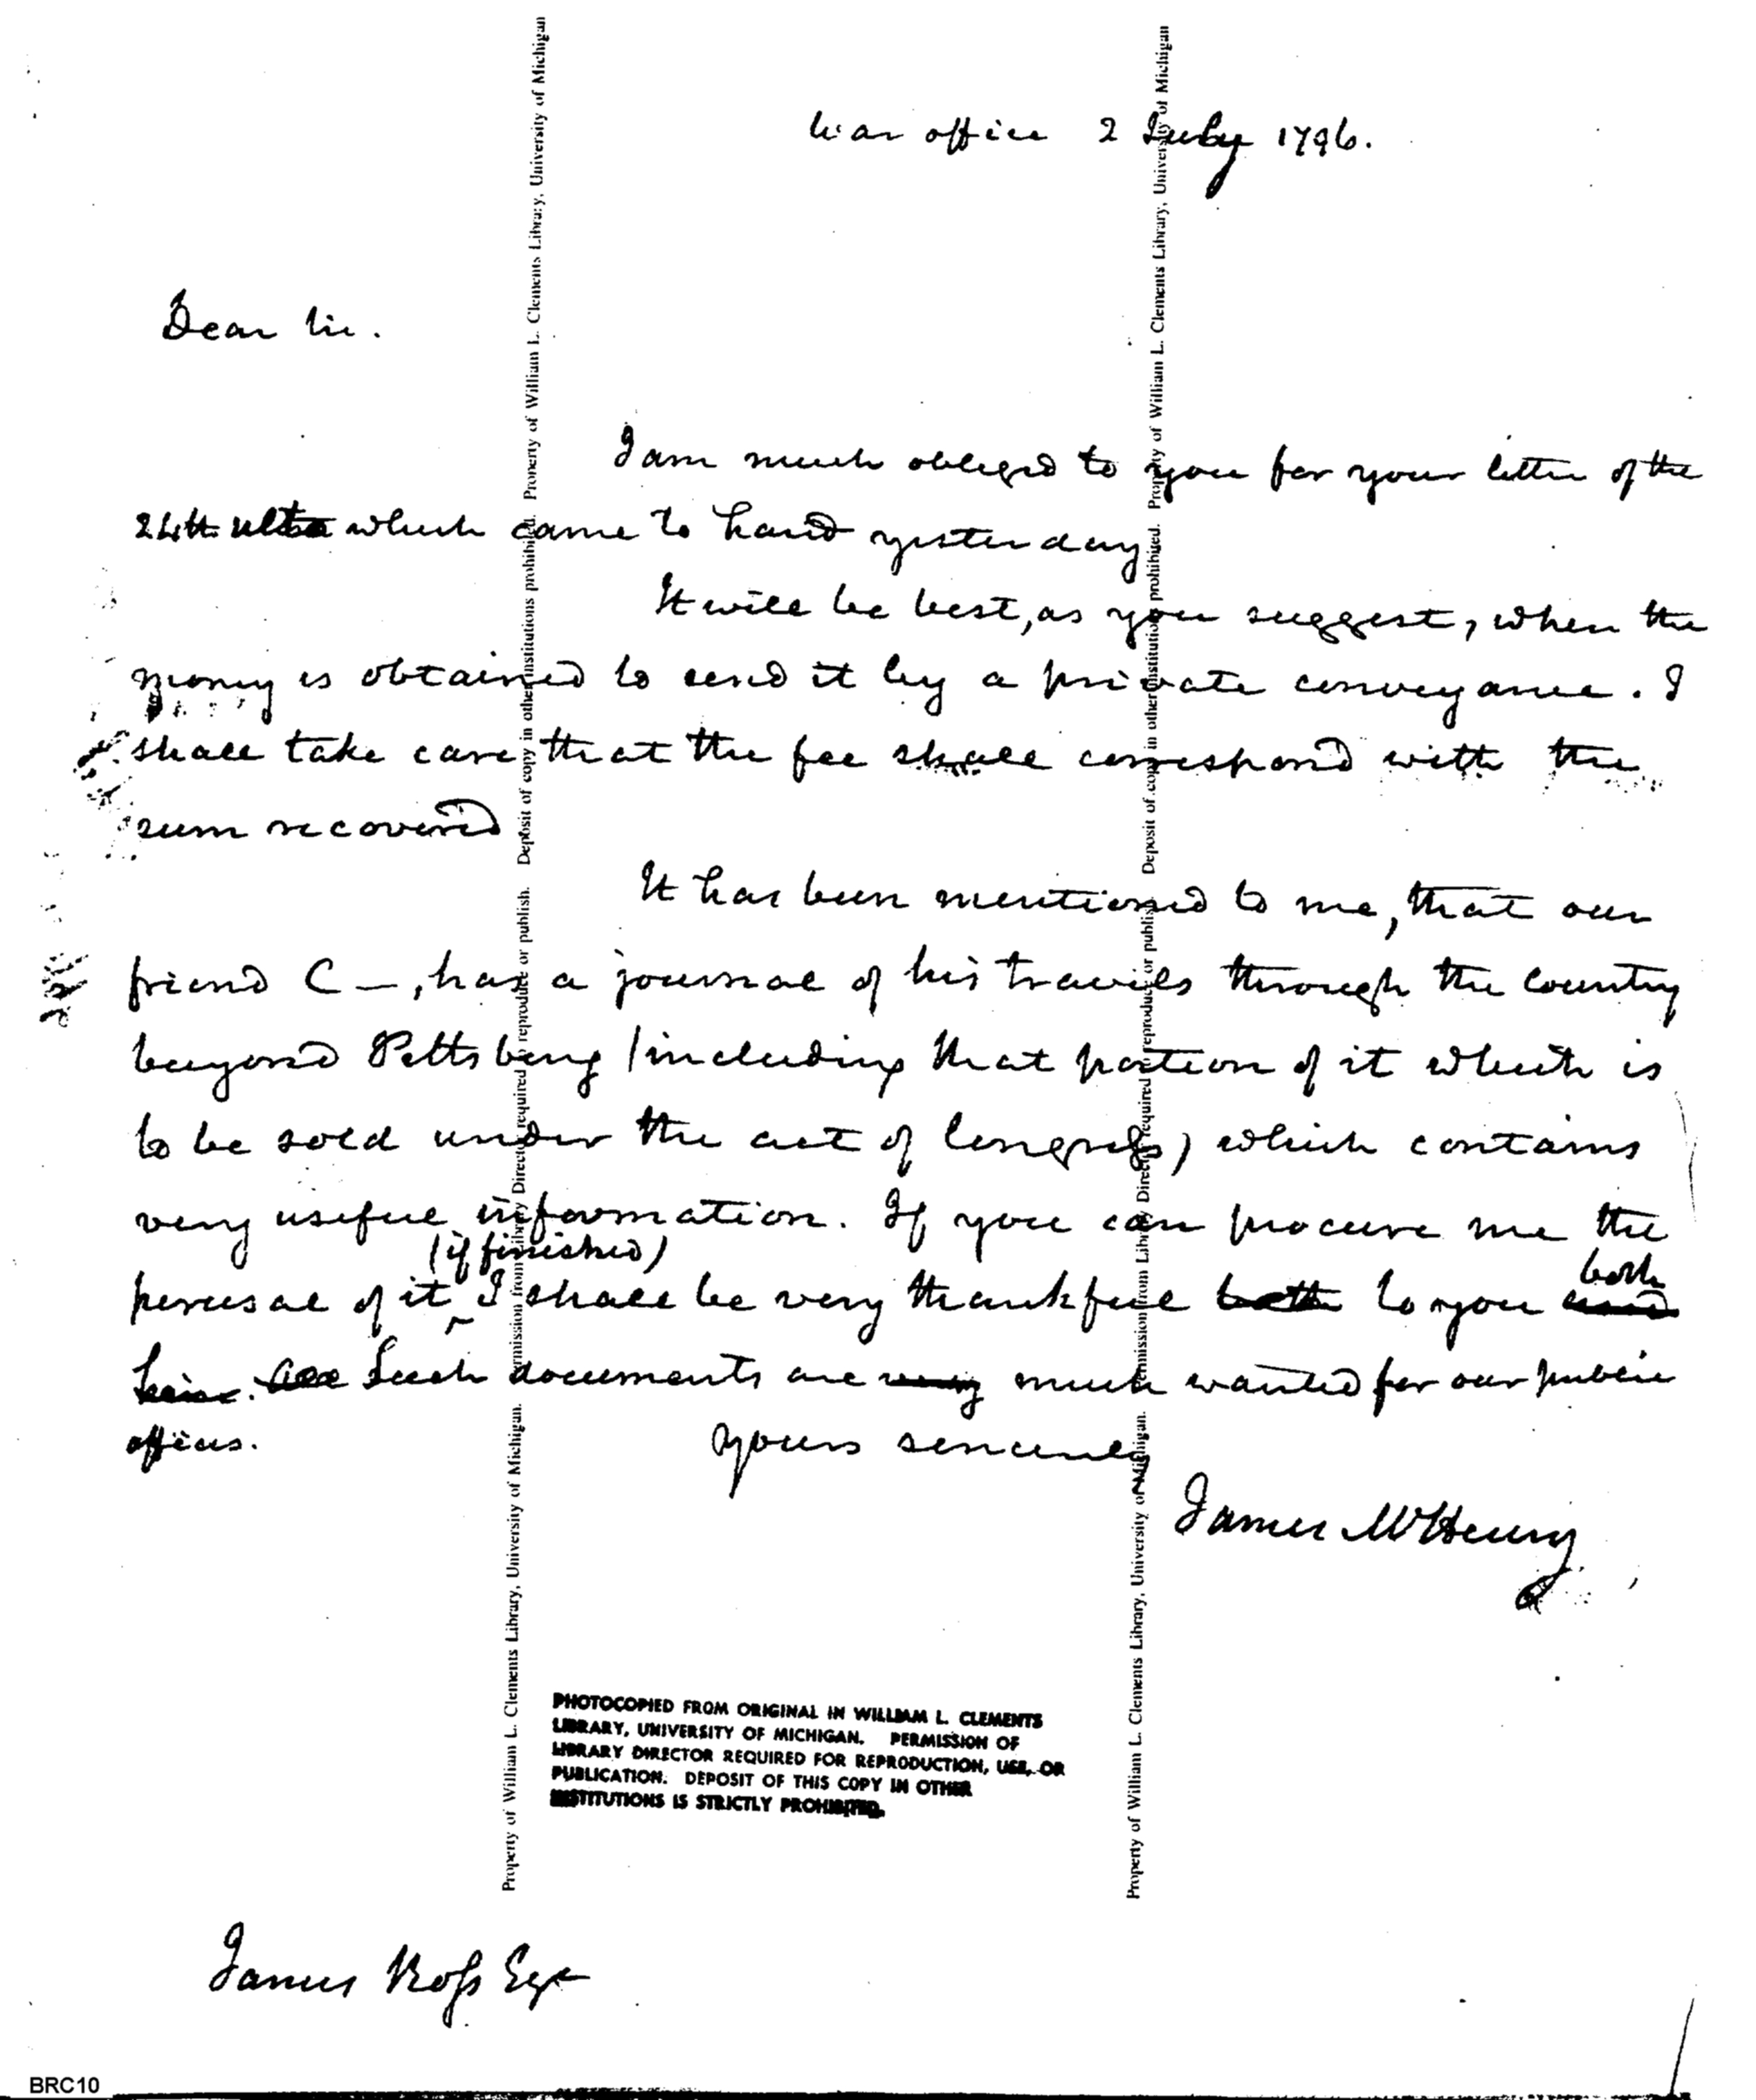 War office 2 July 1796.
Dear Sir.
I am much obliged to you for your letter of the
24th ulto which came to hand yesterday
It will be best, as you suggest, when the
money is obtained to send it by a private conveyance. I
shall take care that the fee shall correspond with the
sum recovered
It has been mentioned to me, that our
friend C—, has a journal of his travels through the country
beyond Pittsburg (including that portion of it which is
to be sold under the act of Congress) which contains
very useful information. If you can procure me the
(if finished)
perusal of it I shall be very thankful both to you and
both
him. All Such documents are very much wanted for our public
offices.
Yours sincerely
James McHenry
PHOTOCOPIED FROM ORIGINAL IN WILLIAM L. CLEMENTS
LIBRARY, UNIVERSITY OF MICHIGAN. PERMISSION OF
LIBRARY DIRECTOR REQUIRED FOR REPRODUCTION, USE, OR
PUBLICATION. DEPOSIT OF THIS COPY IN OTHER
INSTITUTIONS IS STRICTLY PROHIBITED.
James Ross Esqr
BRC10
Property of William L. Clements Library, University of Michigan. Permission from Library Director required to reproduce or publish. Deposit of copy in other institutions prohibited. Property of William L. Clements Library, University of Michigan
Property of William L. Clements Library, University of Michigan. Permission from Library Director required to reproduce or publish. Deposit of copy in other institutions prohibited. Property of William L. Clements Library, University of Michigan